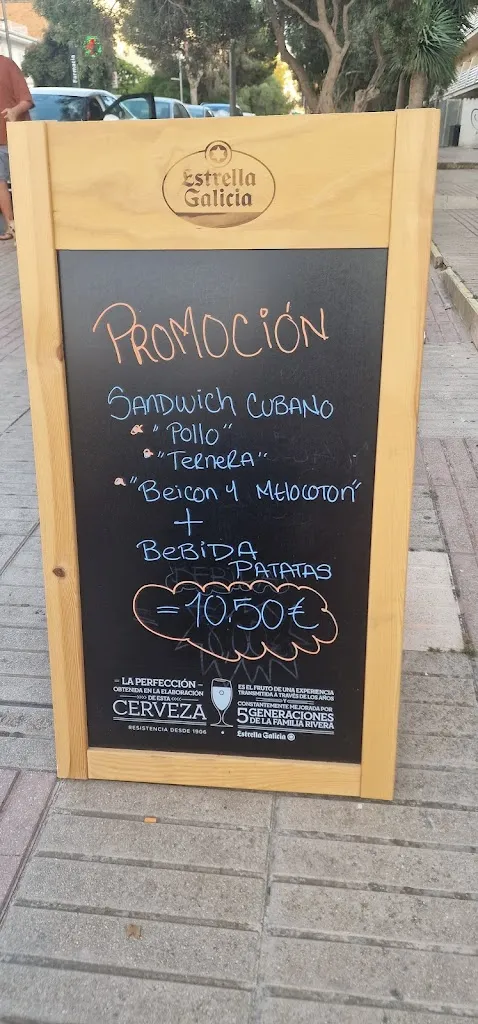 Estrella
Galicia
PROMOCIÓN
SANDWICH CUBANO
"Pollo"
"TERNERA"
"BEICON Y MELOCOTON"
+
BEBIDA
PATATAS
=10.50€
LA PERFECCIÓN
OBTENIDA EN LA ELABORACIÓN
DE ESTA
CERVEZA
RESISTENCIA DESDE 1906
ES EL FRUTO DE UNA EXPERIENCIA
TRANSMITIDA A TRAVÉS DE LOS AÑOS
Y
CONSTANTEMENTE MEJORADA POR
5 GENERACIONES
DE LA FAMILIA RIVERA
Estrella Galicia